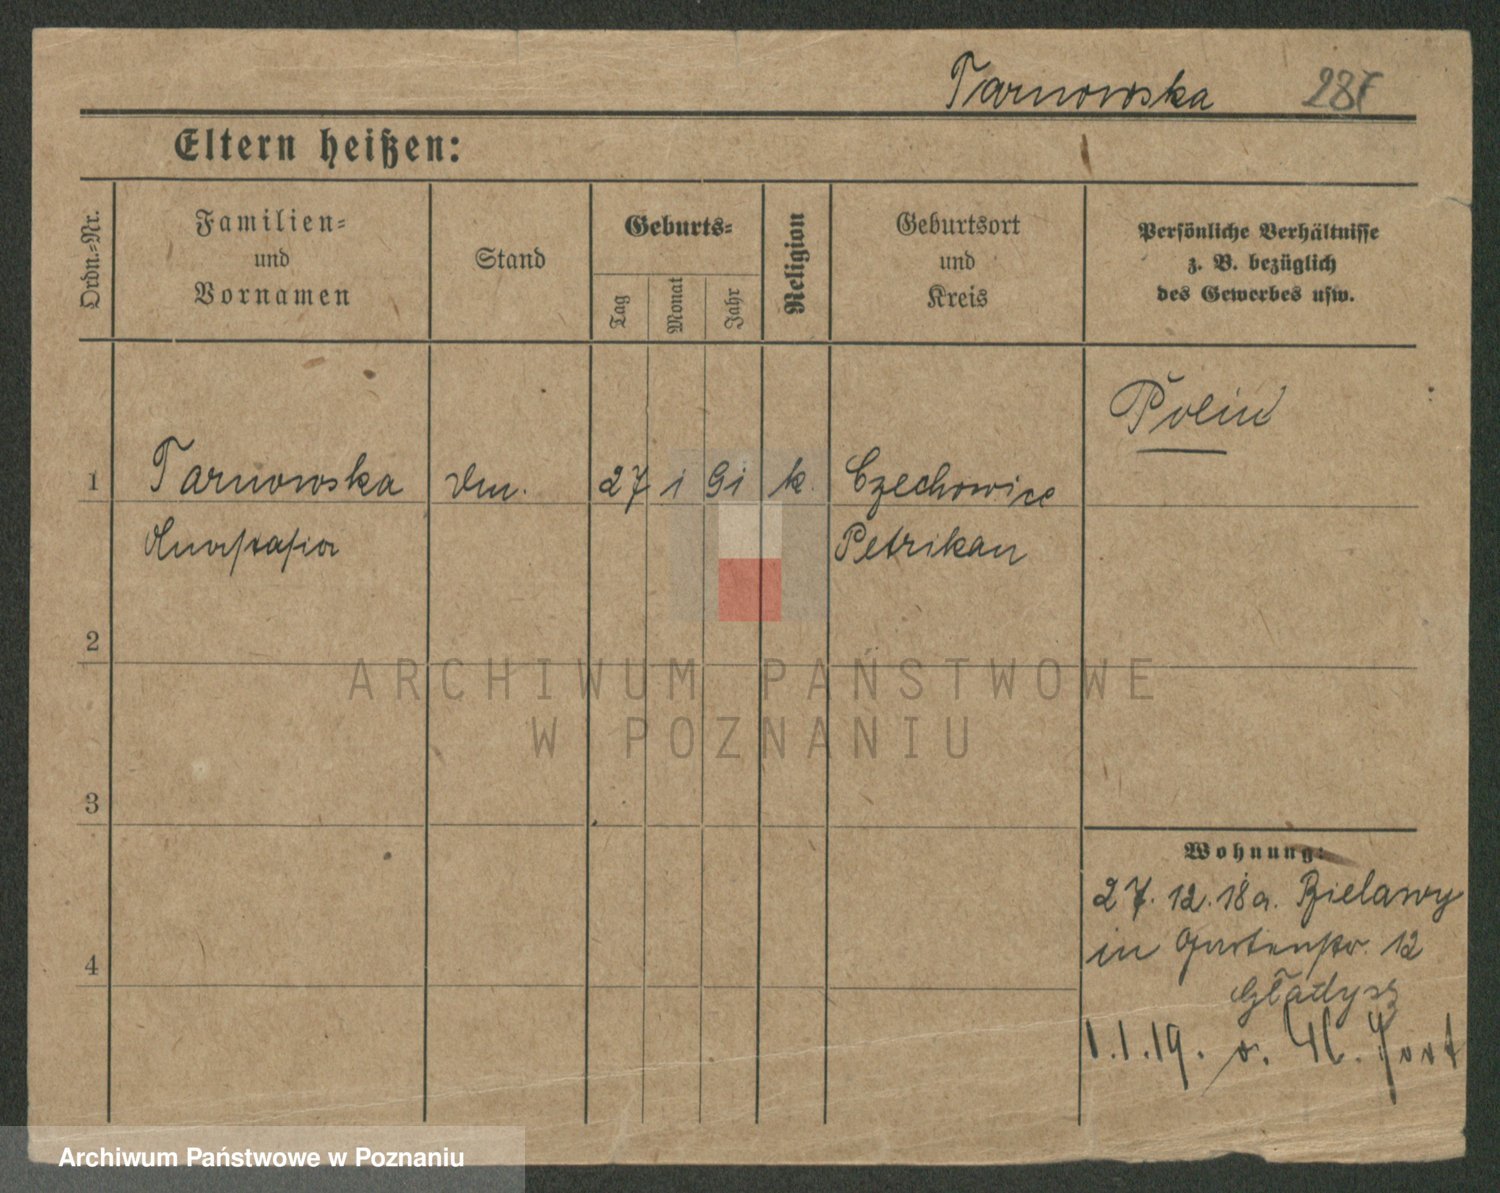 Tarnowska 287
Eltern heißen:
Ordn.-Nr.
Familien-
und
Vornamen
Stand
Geburts-
Tag
Monat
Jahr
Religion
Geburtsort
und
Kreis
Persönliche Verhältnisse
z. B. bezüglich
des Gewerbes usw.
1 Tarnowska 27 1 91 k. Czechowice
Anastasia Petrikau
2
3
4
Wohnung:
27. 12. 18 a. Bielawy
in Gartenstr. 12
Gładysz
1.1.19.
ARCHIWUM PAŃSTWOWE
W POZNANIU
Archiwum Państwowe w Poznaniu